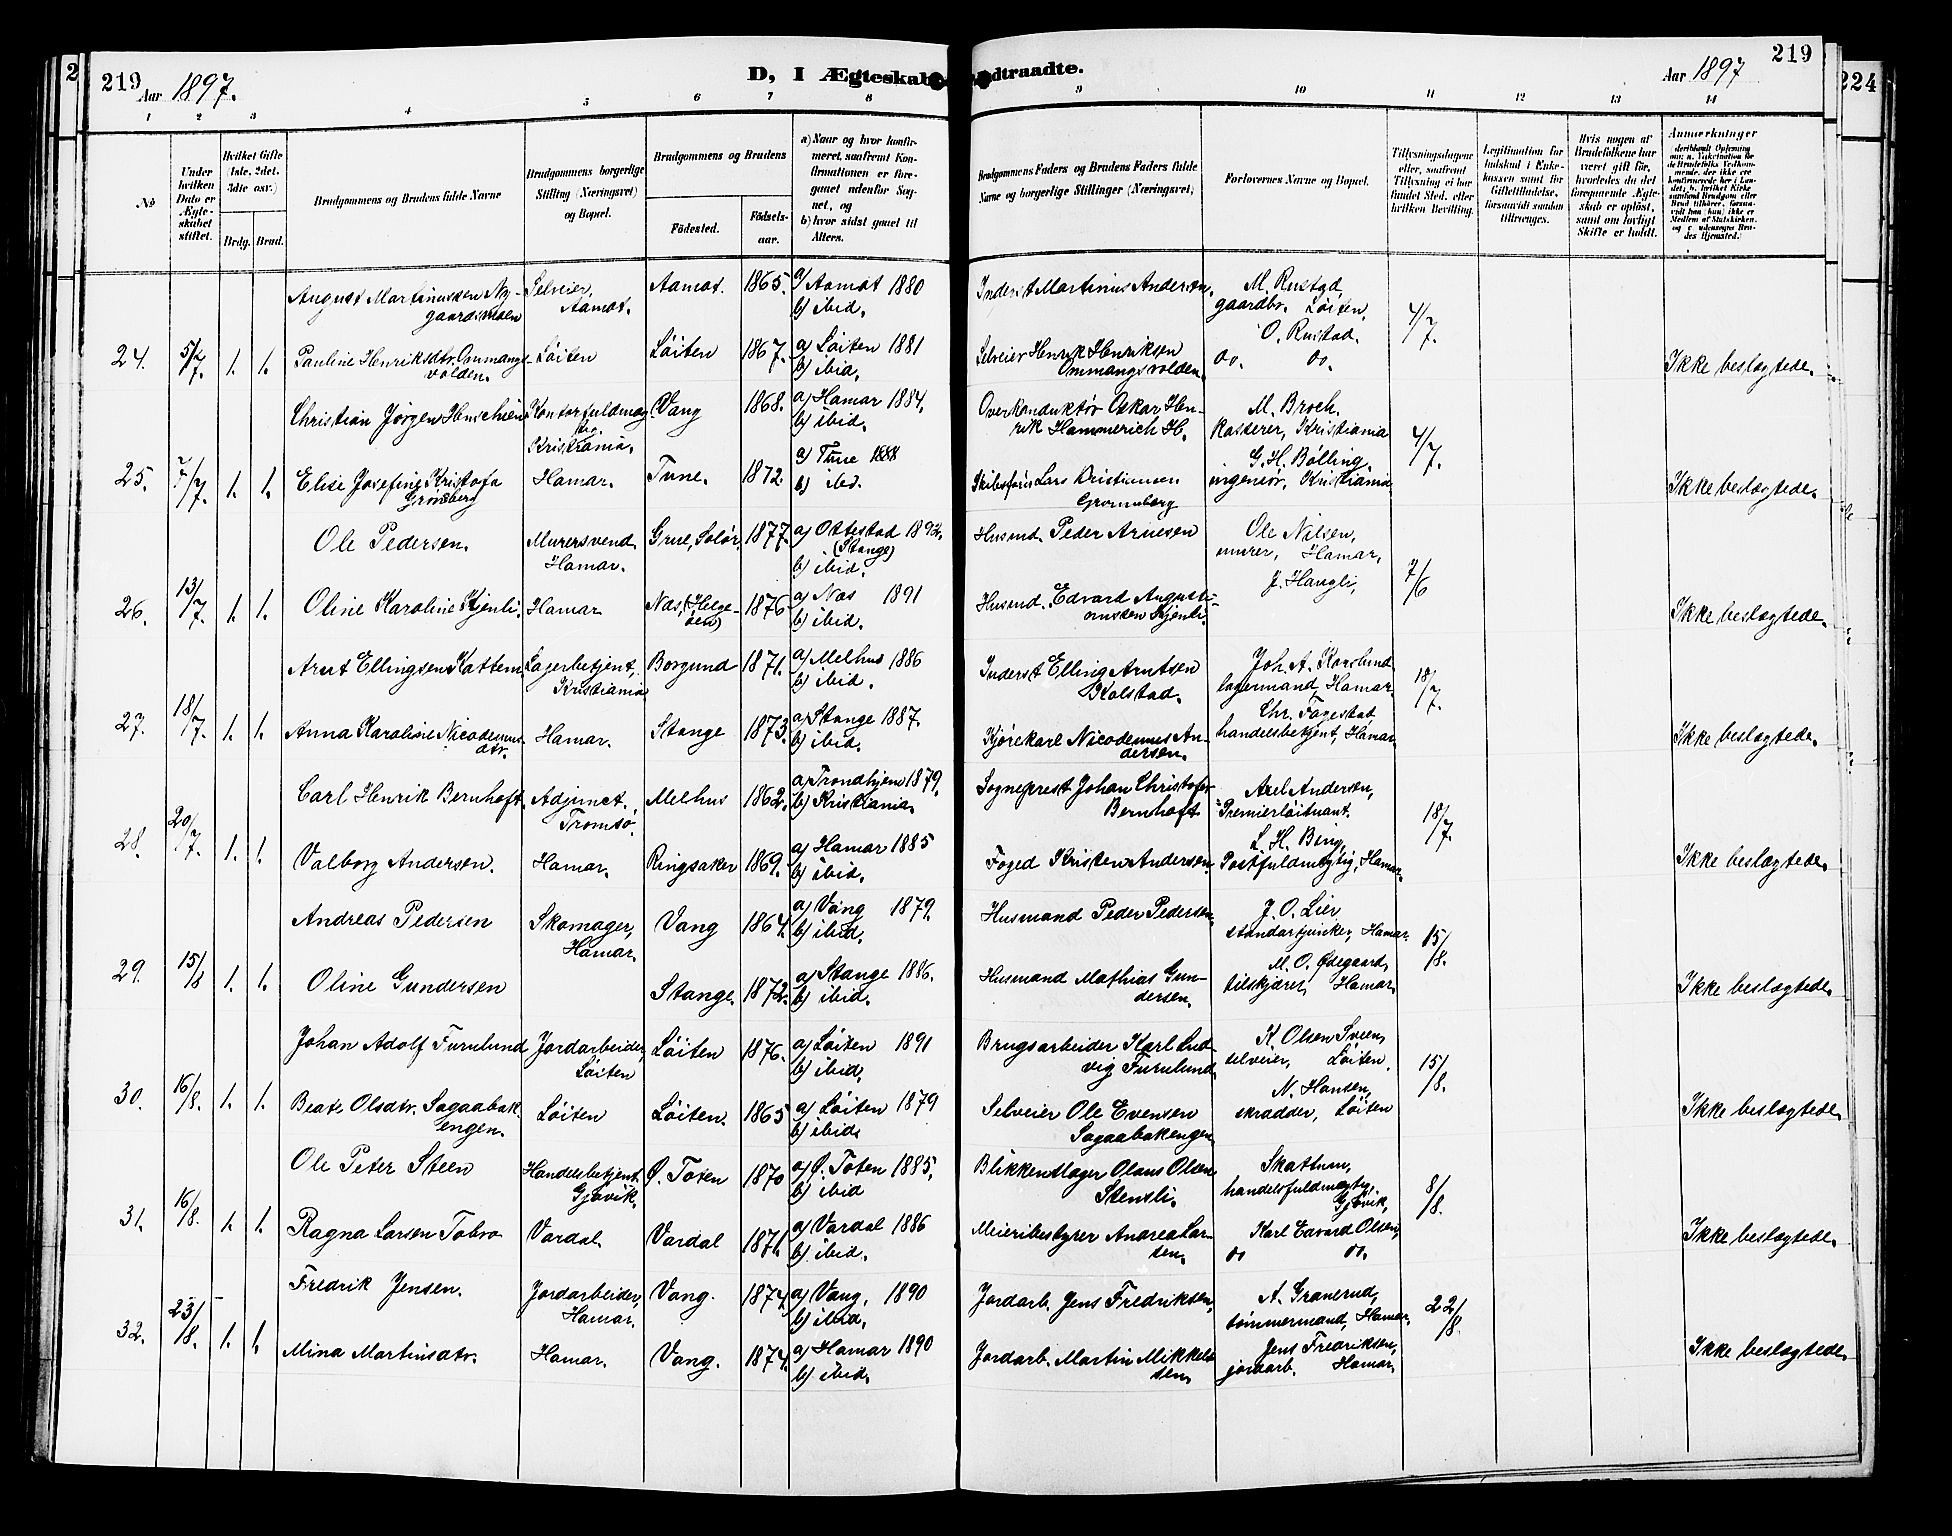 219
Aar 1897.
D, I Ægteskab Indtraadte.
Aar 1897
219
224
2
1 2 3 4 5 6 7 8 9 10 11 12 13 14
No
Under hvilken Dato er Ægteskabet stiftet.
Hvilket Gifte (1ste, 2det, 3die osv.)
Brdg. Brud.
Brudgommens og Brudens fulde Navne
Brudgommens borgerlige Stilling (Næringsvei) og Bopæl.
Brudgommens og Brudens
Fødested.
Fødselsaar.
a) Naar og hvor konfirmeret, saafremt Konfirmationen er foregaaet udenfor Sognet, og
b) hvor sidst gaaet til Alters.
Brudgommens Faders og Brudens Faders fulde Navne og borgerlige Stillinger (Næringsvei)
Forlovernes Navne og Bopæl.
Tillysningsdagene eller, saafremt Tillysning ei har fundet Sted, efter hvilken Bevilling.
Legitimation for Indskud i Enkekassen samt for Giftetilladelse, forsaavidt saadan tiltrænges.
Hvis nogen af Brudefolkene har været gift før, hvorledes da det foregaaende Ægteskab er opløst, samt om lovligt Skifte er holdt.
Anmerkninger
August Martinussen Nygaardsmoen Selveier, Aamot. Aamot. 1865. a) Aamot 1880 b) ibid. Inderst Martinus Andersen. M. Rustad gaardbr. Løiten.
24. 5/7. 1. 1. Pauline Henriksdtr. Ommangsvolden. Løiten Løiten 1867. a) Løiten 1881 b) ibid. Selveier Henrik Henriksen Ommangsvolden. O. Rustad. do. do. 4/7. Ikke beslægtede.
Christian Jørgen Hinrichsen Kontorfuldmægtig. Kristiania. Vang 1868. a) Hamar 1884. b) ibid. Overkonduktør Oskar Henrik Hammerich H. M. Broch. kasserer, Kristiania
25. 7/7. 1. 1. Elise Josefine Kristofa Grønberg Hamar. Tune. 1872. a) Tune 1888 b) ibd. Skibsfører Lars Kristiansen Grønnberg G. H. Bølling, ingeniør, Kristiania 4/7. Ikke beslægtede.
Ole Pedersen. Murersvend. Hamar. Grue, Solør. 1877. a) Ottestad 1892. (Stange) b) ibid. Husmd. Peder Arnesen Ole Nilsen, murer, Hamar,
26. 13/7. 1. 1. Oline Karoline Kjenli. Hamar Næs, (Helgeøen) 1876 a) Næs 1891 b) ibid. Husmd. Edvard Augustinussen Kjenli. J. Haugli, 7/6 Ikke beslægtede.
Arnt Ellingsen Kattem Lagerbetjent, Kristiania Borgund 1871. a) Melhus 1886 b) ibid. Inderst Elling Arntsen Kolstad. Joh. A. Kaaslund lagermand, Hamar.
27. 18/7. 1. 1. Anna Karoline Nicodemusdtr. Hamar. Stange 1873. a) Stange 1887. b) ibid. Kjørekarl Nicodemus Andersen. Chr. Fagestad handelsbetjent, Hamar. 18/7. Ikke beslægtede.
Carl Henrik Bernhoft. Adjunct, Tromsø. Melhus 1862. a) Trondhjem 1879. b) Kristiania. Sogneprest Johan Christofer Bernhoft Axel Andersen, Premierløitnant.
28. 20/7. 1. 1. Valborg Andersen. Hamar. Ringsaker 1869. a) Hamar 1885 b) ibid. Foged Kristen Andersen. L. H. Bing, Postfuldmægtig, Hamar. 18/7. Ikke beslægtede.
Andreas Pedersen Skomager, Hamar. Vang 1864. a) Vang 1879. b) ibid. Husmand Peder Pedersen. J. O. Lier standartjunker, Hamar.
29. 15/8 1. 1. Oline Gundersen Stange. 1872. a) Stange 1886. b) ibid. Husmand Mathias Gundersen. M. O. Ødegaard, tilskjærer, Hamar. 15/8. Ikke beslægtede.
Johan Adolf Furulund Jordarbeider Løiten Løiten 1876. a) Løiten 1891 b) ibid. Brugsarbeider Karl Ludvig Furulund. K. Olsen Sveen, selveier, Løiten.
30. 16/8. 1. 1. Beate Olsdtr. Sagaabakengen. Løiten Løiten. 1865 a) Løiten 1879 b) ibid. Selveier Ole Evensen Sagaabakengen. N. Hansen, skrædder, Løiten 15/8. Ikke beslægtede.
Ole Peter Steen Handelsbetjent. Gjøvik. Ø. Toten 1870 a) Ø. Toten 1885. b) ibid Blikkenslager Olaus Olsen Stensli. Skattum, handelsfuldmægtig, Gjøvik,
31. 16/8. 1. 1. Ragna Larsen Tobro Vardal. Vardal 1871. a) Vardal 1886 b) ibid. Meieribestyrer Andrea Larsen. Karl Edvard Olsen, do do. 8/8. Ikke beslægtede.
Fredrik Jensen. Jordarbeider, Hamar. Vang. 1874. a) Vang. 1890 b) ibid. Jordarb. Jens Fredriksen, A. Granerud, tømmermand, Hamar.
32. 23/8. 1. 1. Mina Martinsdtr. Hamar. Vang. 1874. a) Hamar 1890 b) ibid. Jordarb. Martin Mikkelsen. Jens Fredriksen, jordarb. Hamar. 22/8. Ikke beslægtede.